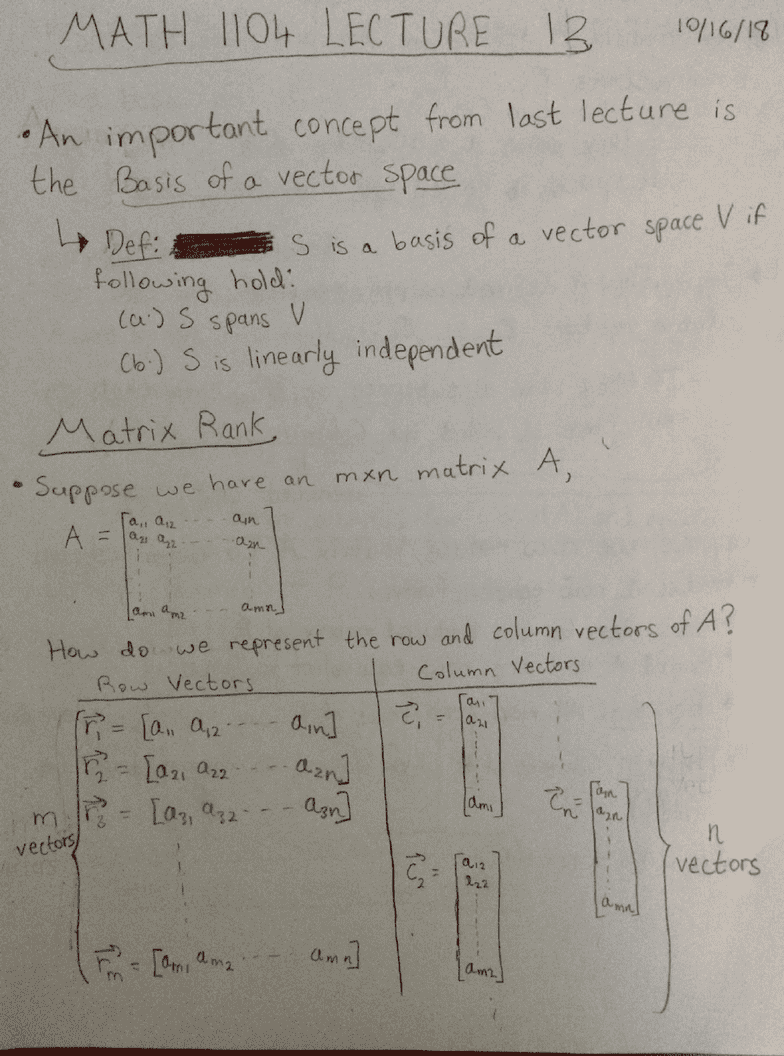 MATH 1104 LECTURE 13 10/16/18
• An important concept from last lecture is
the Basis of a vector space
↳ Def: S is a basis of a vector space V if
following hold:
(a.) S spans V
(b.) S is linearly independent
Matrix Rank
• Suppose we have an mxn matrix A,
A = [a₁₁ a₁₂ ---- a₁ₙ
a₂₁ a₂₂ ---- a₂ₙ
aₘ₁ aₘ₂ --- aₘₙ]
How do we represent the row and column vectors of A?
Row Vectors
r⃗₁ = [a₁₁ a₁₂ ---- a₁ₙ]
r⃗₂ = [a₂₁ a₂₂ ---- a₂ₙ]
r⃗₃ = [a₃₁ a₃₂ --- a₃ₙ]
m
vectors
r⃗ₘ = [aₘ₁ aₘ₂ ---- aₘₙ]
Column Vectors
c⃗₁ = [a₁₁
a₂₁
aₘ₁]
c⃗₂ = [a₁₂
a₂₂
aₘ₂]
c⃗ₙ = [a₁ₙ
a₂ₙ
aₘₙ]
n
vectors